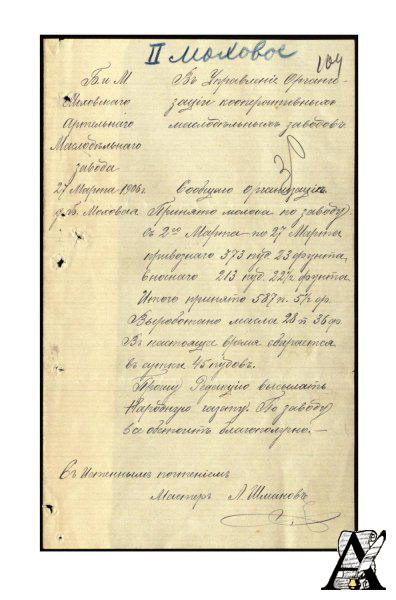 II Моховое
104
Б. и М.
Моховскаго
Артельнаго
Маслодѣльнаго
завода
27 Марта 1906 г.
д. Б. Моховская
Въ Управленіе Органи-
заціи кооперативныхъ
маслодѣльныхъ заводовъ.
Сообщаю Организаціи
Принято молока по заводу
съ 2го Марта по 27 Марта
привознаго 373 пуд. 23 фунта,
вноснаго 213 пуд. 22½ фунта
Итого принято 587 п. 5½ фр.
Выработано масла 28 п 36 ф
Въ настоящее время сбирается
въ сутки 45 пудовъ.
Прошу Редакцію высылать
Народную газету. По заводу
все обстоитъ благополучно.—
Съ Истеннымъ почтеніемъ
Мастеръ Л. Шмановъ